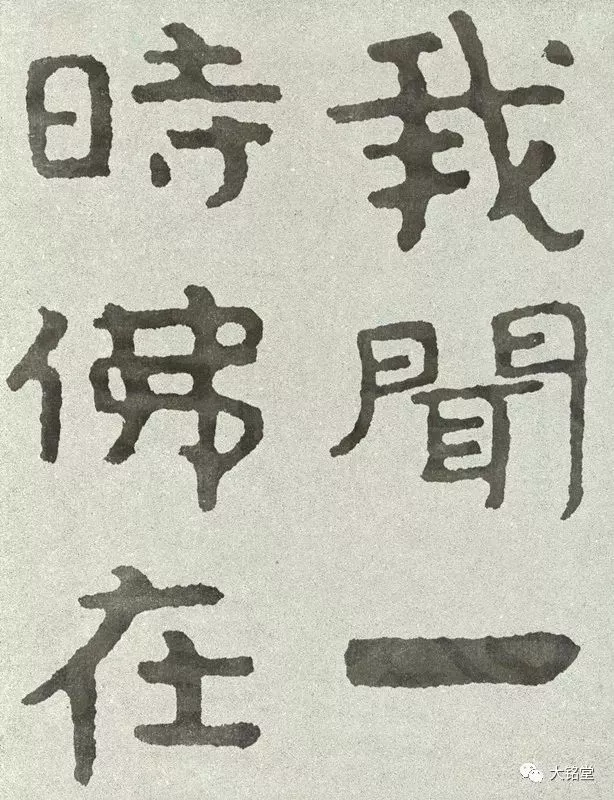 我聞一
時佛在
大铭堂